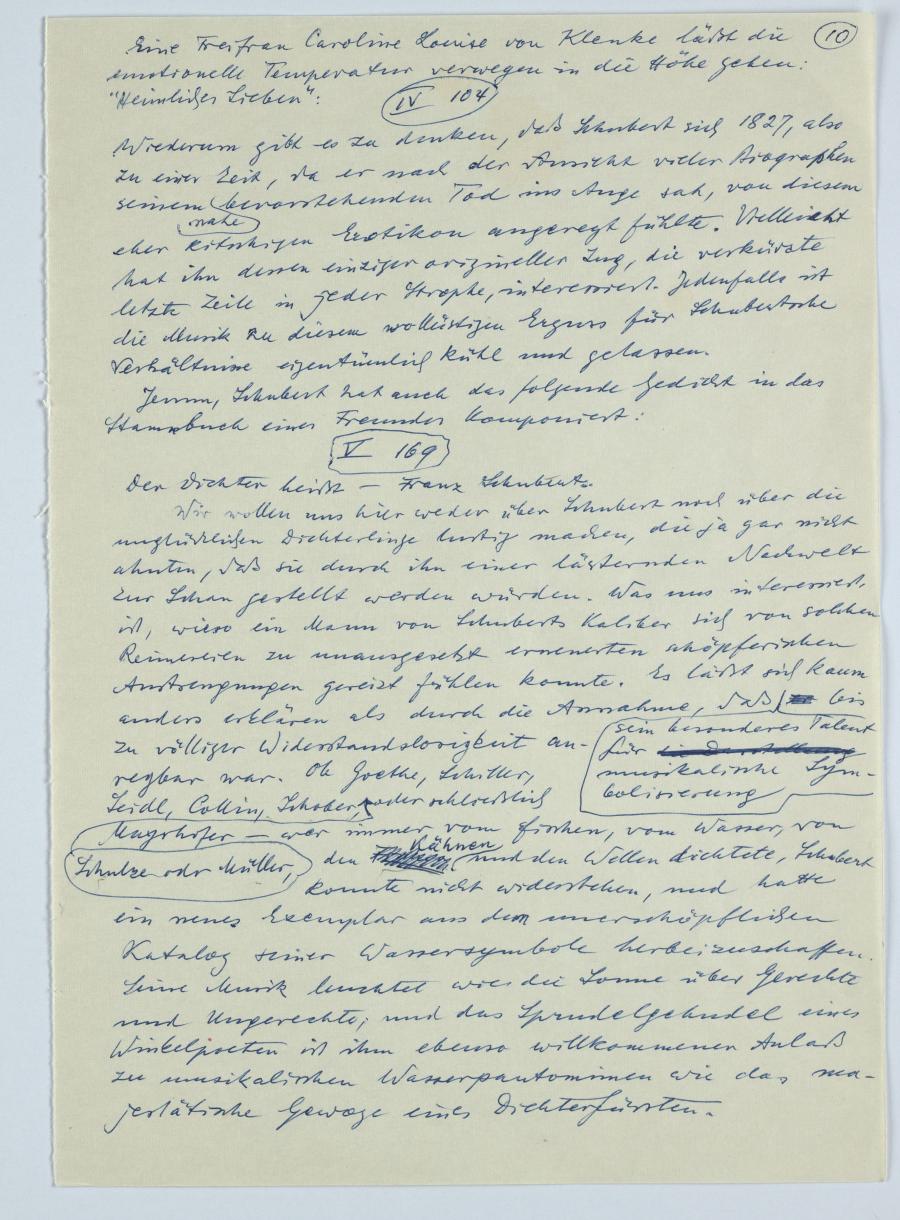 Eine Freifrau Caroline Louise von Klenke läßt die
10
emotionelle Temperatur verwegen in die Höhe gehen:
"Heimliches Lieben":
IV 104
Wiederum gibt es zu denken, daß Schubert sich 1827, also
zu einer Zeit, da er nach der Ansicht vieler Biographen
seinem bevorstehenden Tod ins Auge sah, von diesem
nahe
eher kitschigen Erotikon angeregt fühlte. Vielleicht
hat ihn dessen einziger origineller Zug, die verkürzte
letzte Zeile in jeder Strophe, interessiert. Jedenfalls ist
die Musik zu diesem wollüstigen Erguss für Schubertsche
Verhältnisse eigentümlich kühl und gelassen.
Jenun, Schubert hat auch das folgende Gedicht in das
Stammbuch eines Freundes komponiert:
V 169
Der Dichter heißt – Franz Schubert.
Wir wollen uns hier weder über Schubert noch über die
unglücklichen Dichterlinge lustig machen, die ja gar nicht
ahnten, daß sie durch ihn einer lästernden Nachwelt
zur Schau gestellt werden würden. Was uns interessiert,
ist, wieso ein Mann von Schuberts Kaliber sich von solchen
Reimereien zu unausgesetzt erneuerten schöpferischen
Anstrengungen gereizt fühlen konnte. Es läßt sich kaum
anders erklären als durch die Annahme, daß bis
sein besonderes Talent
für die Darstellung
musikalische Sym-
bolisierung
zu völliger Widerstandslosigkeit an-
regbar war. Ob Goethe, Schiller,
Seidl, Collin, Schober, oder schliesslich
Mayrhofer – wer immer vom Fischen, vom Wasser, von
Schulze oder Müller,
Kähnen
den und den Wellen dichtete, Schubert
konnte nicht widerstehen, und hatte
ein neues Exemplar aus dem unerschöpflichen
Katalog seiner Wassersymbole herbeizuschaffen.
Seine Musik leuchtet wie die Sonne über Gerechte
und Ungerechte; und das Sprudelgehudel eines
Winkelpoeten ist ihm ebenso willkommenen Anlaß
zu musikalischen Wasserpantomimen wie das ma-
jestätische Gewoge eines Dichterfürsten.